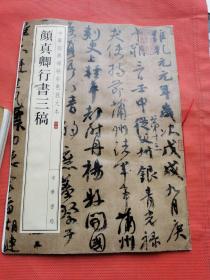 中華經典碑帖彩色放大本
顔真卿行書三稿
中華書局
維乾元元年歲次戊戌九月庚
午朔三日壬申第十三從父銀青光祿
夫使持節蒲州諸軍事蒲州
刺史上輕車都尉丹楊縣開國